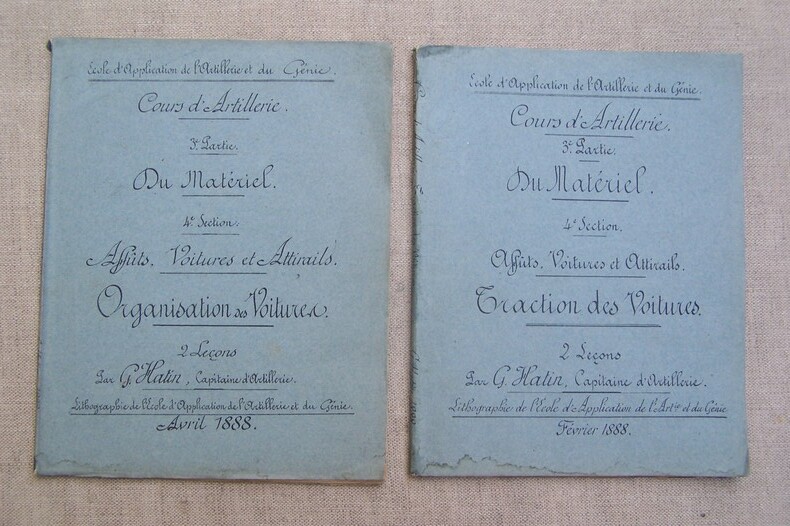 Ecole d'Application de l'Artillerie et du Génie.
Cours d'Artillerie.
3e Partie.
Du Matériel.
4e Section.
Affûts, Voitures et Attirails.
Organisation des Voitures.
2 Leçons
Par G. Hatin, Capitaine d'Artillerie.
Lithographie de l'Ecole d'Application de l'Artillerie et du Génie.
Avril 1888.
Ecole d'Application de l'Artillerie et du Génie.
Cours d'Artillerie.
3e Partie.
Du Matériel.
4e Section.
Affûts, Voitures et Attirails.
Traction des Voitures.
2 Leçons
Par G. Hatin, Capitaine d'Artillerie.
Lithographie de l'Ecole d'Application de l'Artie et du Génie
Février 1888.